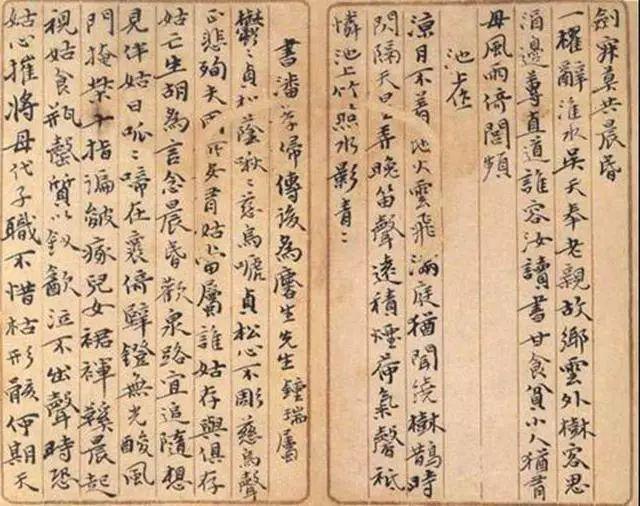 劍寂莫共晨昏
一櫂辭淮水吳天奉老親故鄉雲外樹客思
酒邊尊直道誰容汝讀書甘食貧小人猶有
母風雨倚閭頻
池上
涼月不著地火雲飛滿庭猶聞繞樹鵲時
閃隔天星弄晚笛聲遠積煙荷氣馨祗
憐池上竹〻照水影青〻
書潘孝婦傳後為麐生先生鍾瑞屬
鬱〻貞松蔭啾〻慈烏啼貞松心不彫慈烏聲
正悲殉夫姑當屬誰姑存與俱存
姑亡生胡為言念晨昏歡泉路宜追隨想
見伴姑日呱〻啼在褱倚壁鐙無光酸風
門掩柴十指徧皴瘃兒女裙褌鞵晨起
視姑食瓶罄質以釵歔泣不出聲時恐
姑心摧將母代子職不惜枯形骸何期天